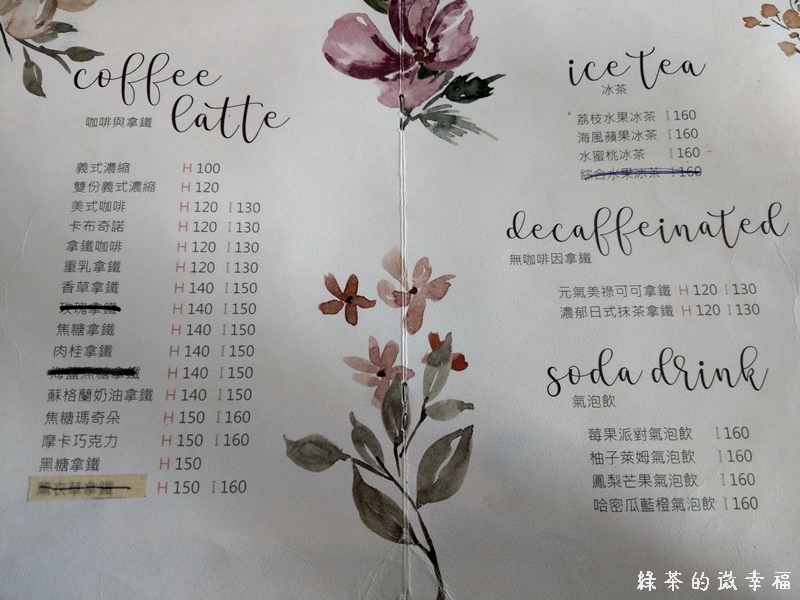 coffee
latte
咖啡與拿鐵
義式濃縮 H 100
雙份義式濃縮 H 120
美式咖啡 H 120 I 130
卡布奇諾 H 120 I 130
拿鐵咖啡 H 120 I 130
重乳拿鐵 H 120 I 130
香草拿鐵 H 140 I 150
玫瑰拿鐵 H 140 I 150
焦糖拿鐵 H 140 I 150
肉桂拿鐵 H 140 I 150
海鹽焦糖拿鐵 H 140 I 150
蘇格蘭奶油拿鐵 H 140 I 150
焦糖瑪奇朵 H 150 I 160
摩卡巧克力 H 150 I 160
黑糖拿鐵 H 150
薰衣草拿鐵 H 150 I 160
ice tea
冰茶
荔枝水果冰茶 I 160
海風蘋果冰茶 I 160
水蜜桃冰茶 I 160
綜合水果冰茶 I 160
decaffeinated
無咖啡因拿鐵
元氣美祿可可拿鐵 H 120 I 130
濃郁日式抹茶拿鐵 H 120 I 130
soda drink
氣泡飲
莓果派對氣泡飲 I 160
柚子萊姆氣泡飲 I 160
鳳梨芒果氣泡飲 I 160
哈密瓜藍橙氣泡飲 I 160
綠茶的微幸福